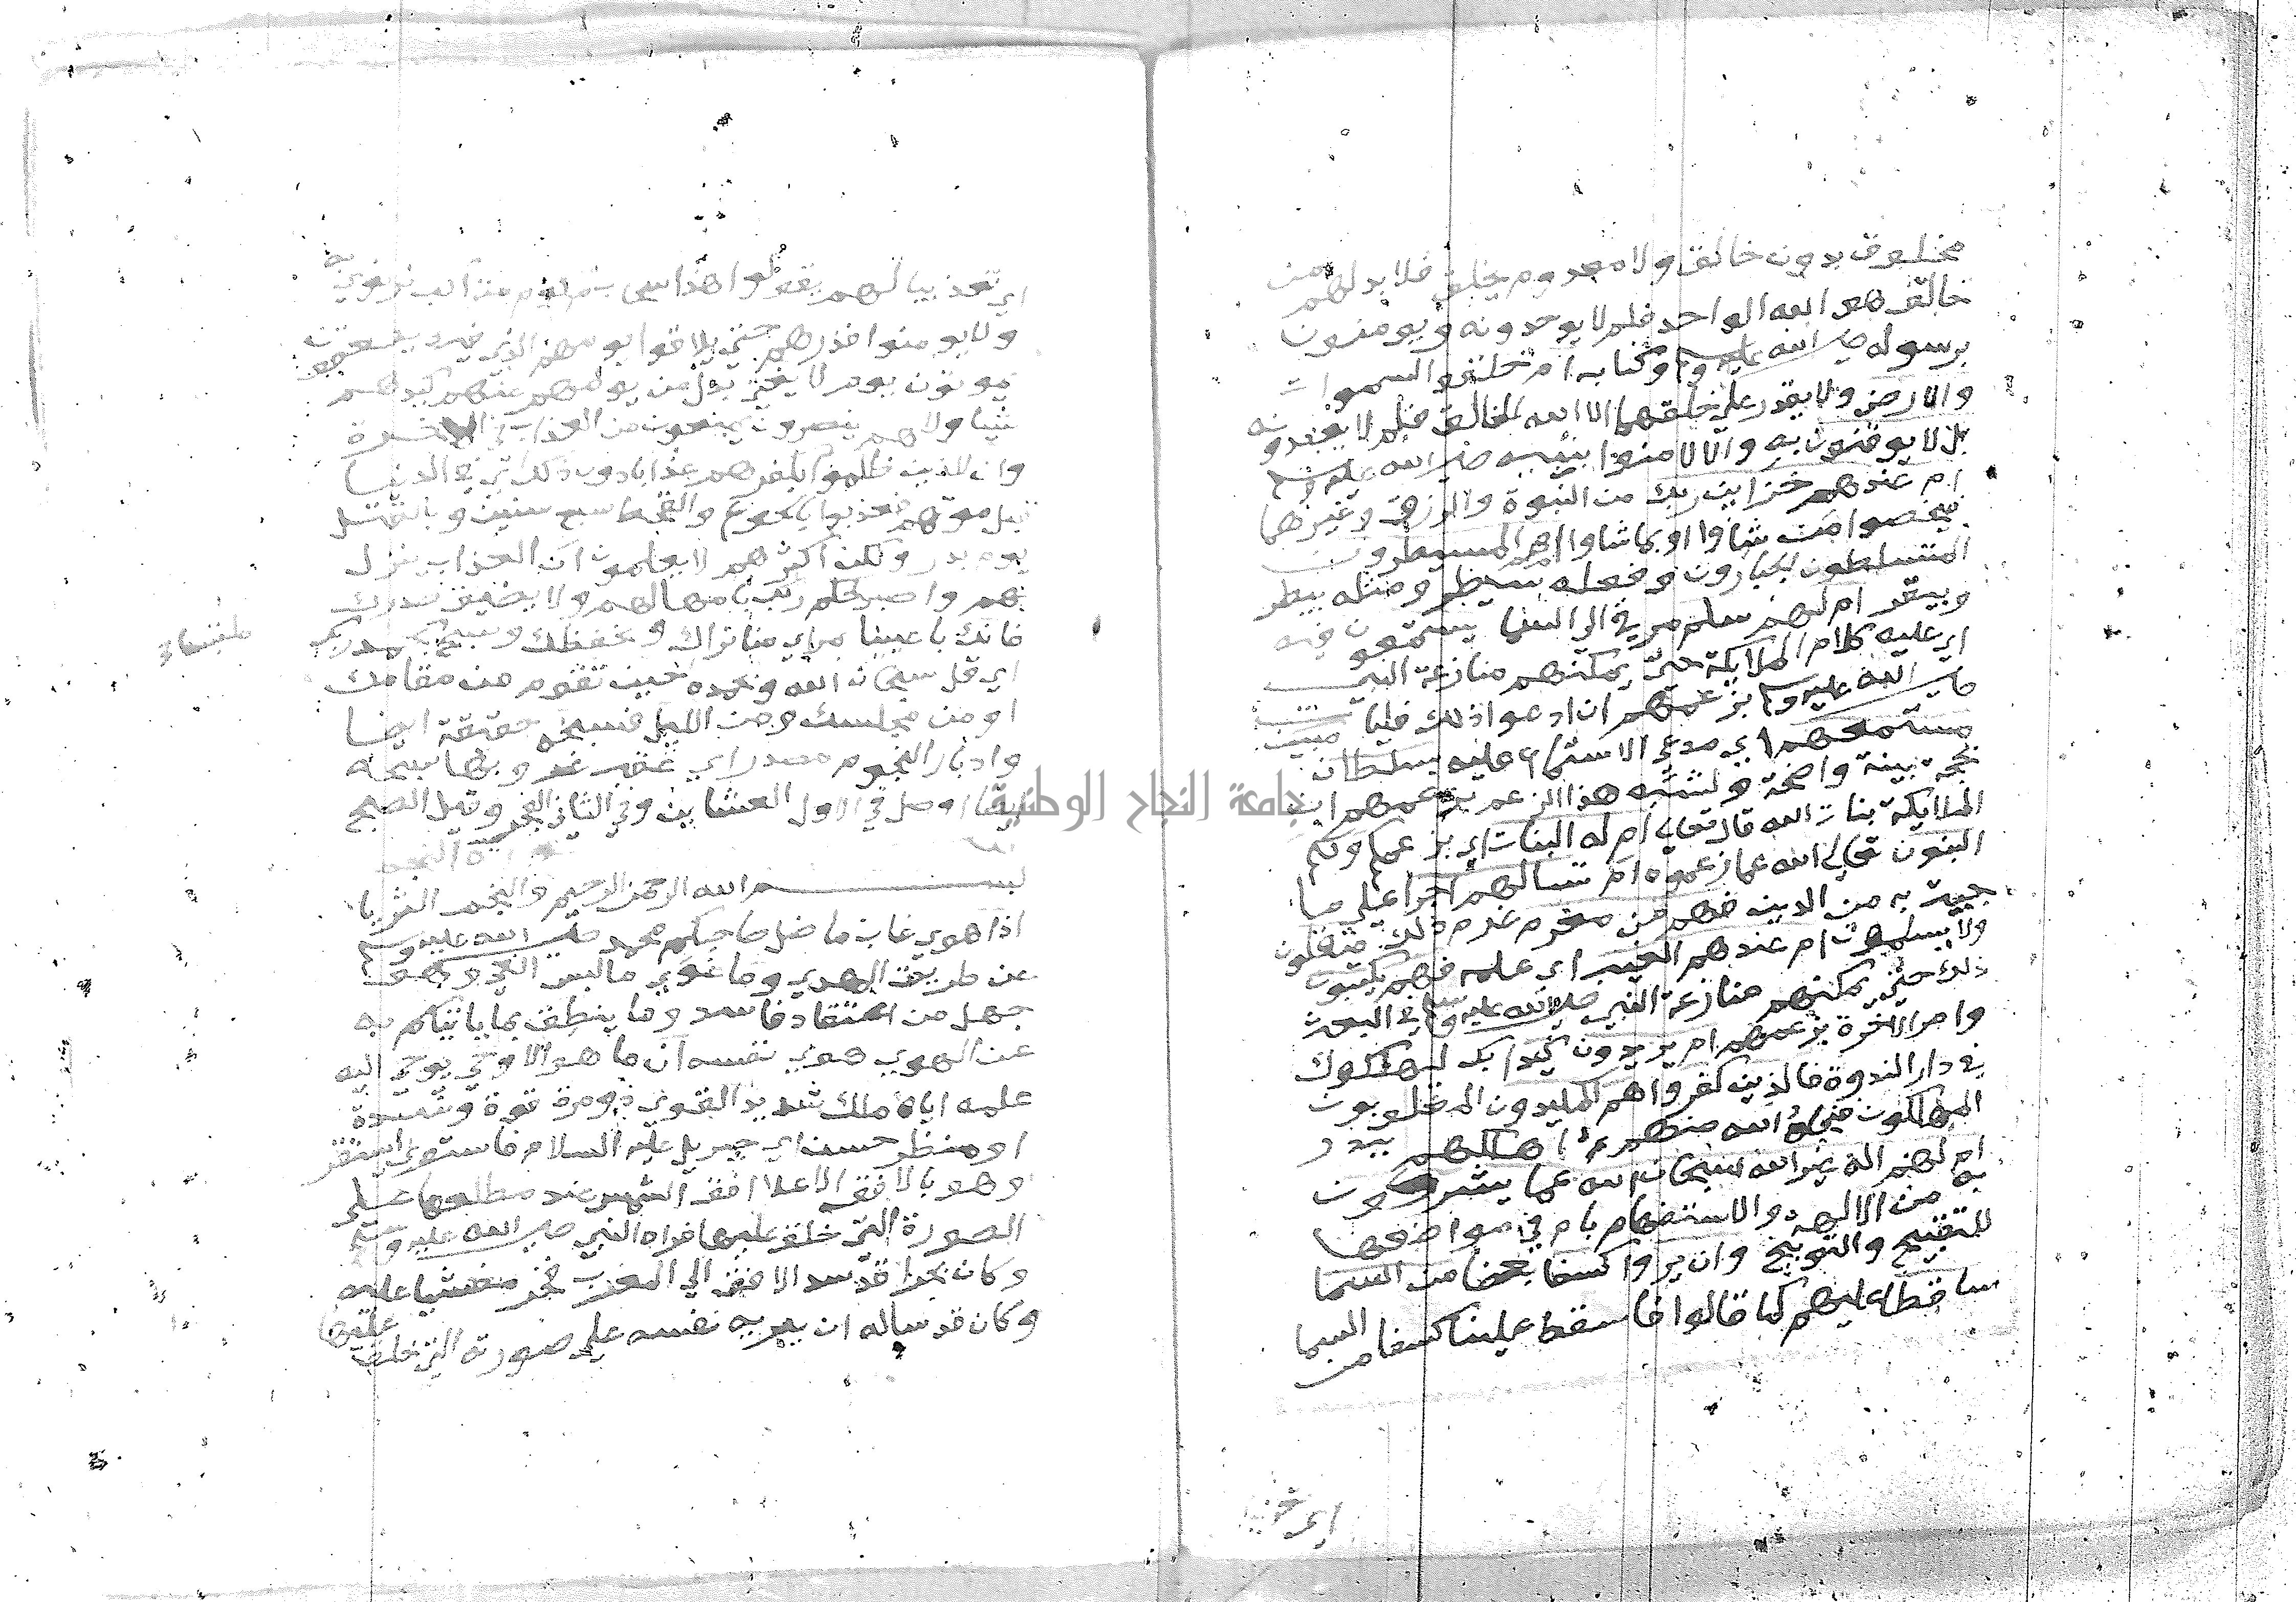 مخلوق بدون خالق ولا معدوم يخلق فلا بد لهم من
خالق هو الله الواحد فلم لا يوحدونه ويومنون
برسوله صلى الله عليه وسلم وكتابه ام خلقوا السموات
والارض ولا يقدر على خلقهما الا الله الخالق فلم لا يعبدونه
بل لا يوقنون به والا لامنوا بنبيه صلى الله عليه وسلم
ام عندهم خزاين ربك من النبوة والرزق وغيرهما
فيخصوا من شاوا او بما شاوا ام هم المسيطرون
المتسلطون الجبارون وفعله سيطر ومثله بيطر
وبيقر ام لهم سلم مرقي الى السما يستمعون فيه
اي عليه كلام الملايكة حتى يمكنهم منازعة النبي
صلى الله عليه وسلم بزعمهم ان ادعوا ذلك فليات
مستمعهم اي مدعي الاستماع عليه بسلطان مبين
بحجة بينة واضحة ولشبه هذا الزعم بزعمهم ان
الملايكة بنات الله قال تعالى ام له البنات اي بزعمكم ولكم
البنون تعالى الله عما زعموه ام تسالهم اجرا على ما
جيتهم به من الدين فهم من مغرم غرم ذلك مثقلون
ولا يسلمون ام عندهم الغيب اي علمه فهم يكتبون
ذلك حتى يمكنهم منازعة النبي صلى الله عليه وسلم في البعث
وامر الاخرة بزعمهم ام يريدون كيدا بك ليهلكوك
في دار الندوة فالذين كفروا هم المكيدون المغلوبون
المهلكون فحفظه الله منهم ثم اهلكهم ببدر
ام لهم اله غير الله سبحان الله عما يشركون
به من الالهة والاستفهام بام في مواضعها
للتقبيح والتوبيخ وان يروا كسفا بعضا من السما
ساقطا عليهم كما قالوا فاسقط علينا كسفا من السما
اي تعذيبا لهم يقولوا هذا سحاب مركوم متراكب نرتوي به
ولا يومنوا فذرهم حتى يلاقوا يومهم الذي فيه يصعقون
يموتون يوم لا يغني بدل من يومهم عنهم كيدهم
شيا ولا هم ينصرون يمنعون من العذاب في الاخرة
وان للذين ظلموا بكفرهم عذابا دون ذلك اي في الدنيا
قبل موتهم فعذبوا بالجوع والقحط سبع سنين وبالقتل
يوم بدر ولكن اكثرهم لا يعلمون ان العذاب ينزل
بهم واصبر لحكم ربك بامهالهم ولا يضيق صدرك
فانك باعيننا بمراي منا نراك ونحفظك وسبح بحمد ربك
اي قل سبحان الله وبحمده حين تقوم من منامك
او من مجلسك ومن الليل فسبحه حقيقة ايضا
وادبار النجوم مصدر اي عقب غروبها سبحه
ايضا او صل في الاول العشاين وفي الثاني الفجر وقيل الصبح
بسم الله الرحمن الرحيم والنجم الثريا
اذا هوى غاب ما ضل صاحبكم محمد صلى الله عليه وسلم
عن طريق الهدى وما غوى ما لابس الغي وهو
جهل من اعتقاد فاسد وما ينطق بما ياتيكم به
عن الهوى هوى نفسه ان ما هو الا وحي يوحى اليه
علمه اياه ملك شديد القوى ذو مرة قوة وشدة
او منظر حسن اي جبريل عليه السلام فاستوى استقر
وهو بالافق الاعلا افق الشمس عند مطلعها على
الصورة التي خلق عليها فراه النبي صلى الله عليه وسلم
وكان بحرا قد سد الافق الى المغرب فخر مغشيا عليه
وكان قد ساله ان يريه نفسه على صورته التي خلق عليها
جامعة النجاح الوطنية